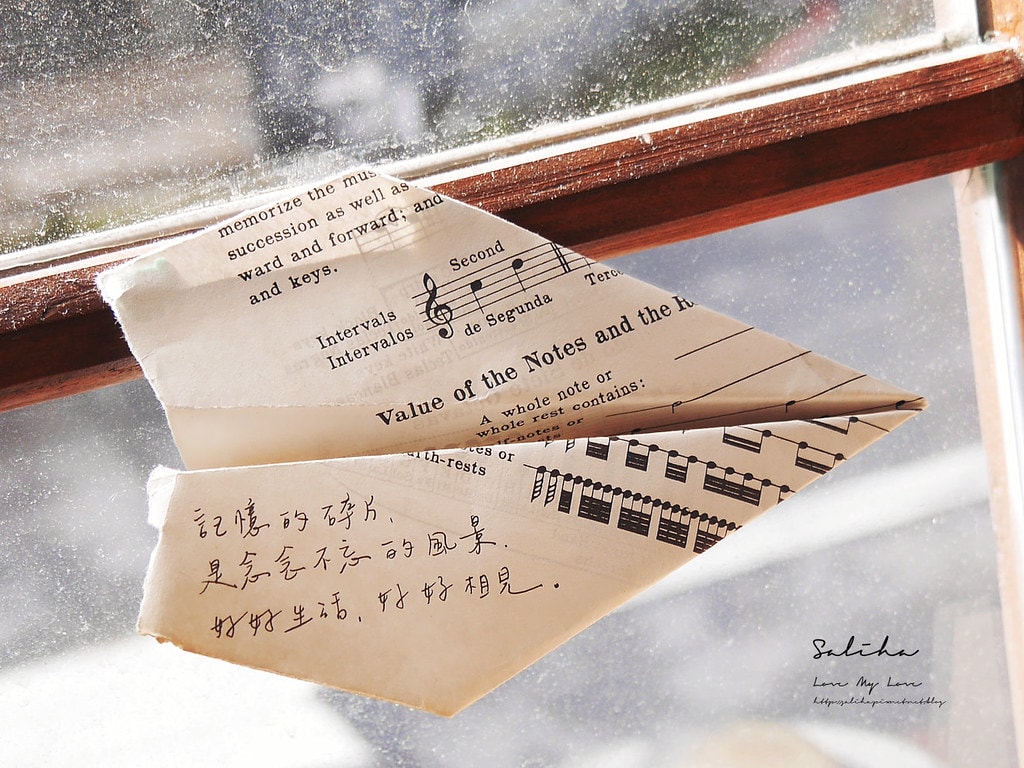 memorize the mus
succession as well as
ward and forward; and
and keys.
Second
Intervals
Intervalos
de Segunda
Terce
Value of the Notes and the R
A whole note or
whole rest contains:
lf-notes or
tes or
rth-rests
記憶的碎片、
是念念不忘的風景.
好好生活，好好相見。
Saliha
Love My Love
http://saliha.pixnet.net/blog